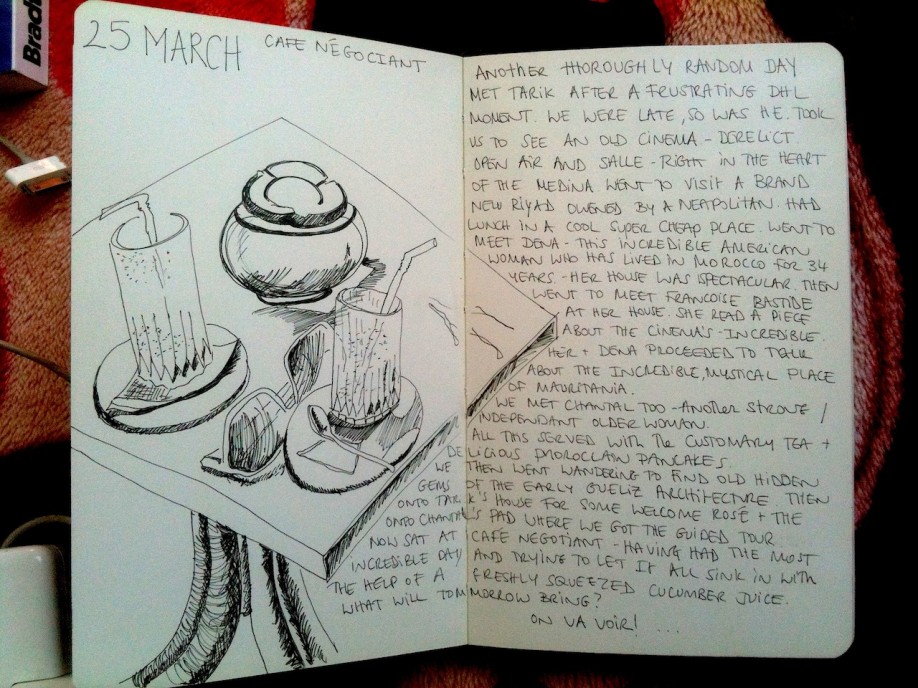 Brad
25 MARCH CAFE NÉGOCIANT
ANOTHER THOROUGHLY RANDOM DAY
MET TARIK AFTER A FRUSTRATING DHL
MOMENT. WE WERE LATE, SO WAS HE. TOOK
US TO SEE AN OLD CINEMA - DERELICT.
OPEN AIR AND SALLE - RIGHT IN THE HEART
OF THE MEDINA WENT TO VISIT A BRAND
NEW RIYAD OWENED BY A NEAPOLITAN. HAD
LUNCH IN A COOL SUPER CHEAP PLACE. WENT TO
MEET DENA - THIS INCREDIBLE AMERICAN
WOMAN WHO HAS LIVED IN MOROCCO FOR 34
YEARS. HER HOUSE WAS SPECTACULAR. THEN
WENT TO MEET FRANCOISE BASTIDE
AT HER HOUSE. SHE READ A PIECE
ABOUT THE CINEMA'S - INCREDIBLE.
HER + DENA PROCEEDED TO TALK
ABOUT THE INCREDIBLE, MYSTICAL PLACE
OF MAURITANIA.
WE MET CHANTAL TOO - ANOTHER STRONG /
INDEPENDANT OLDER WOMAN.
ALL THIS SERVED WITH THE CUSTOMARY TEA +
DELICIOUS MOROCCAIN PANCAKES.
WE THEN WENT WANDERING TO FIND OLD HIDDEN
GEMS OF THE EARLY GUELIZ ARCHITECTURE THEN
ONTO TARIK'S HOUSE FOR SOME WELCOME ROSÉ + THE
ONTO CHANTAL'S PAD WHERE WE GOT THE GUIDED TOUR
NOW SAT AT CAFÉ NEGOTIANT - HAVING HAD THE MOST
INCREDIBLE DAY AND TRYING TO LET IT ALL SINK IN WITH
THE HELP OF A FRESHLY SQUEEZED CUCUMBER JUICE.
WHAT WILL TOMMORROW BRING?
ON VA VOIR! ...